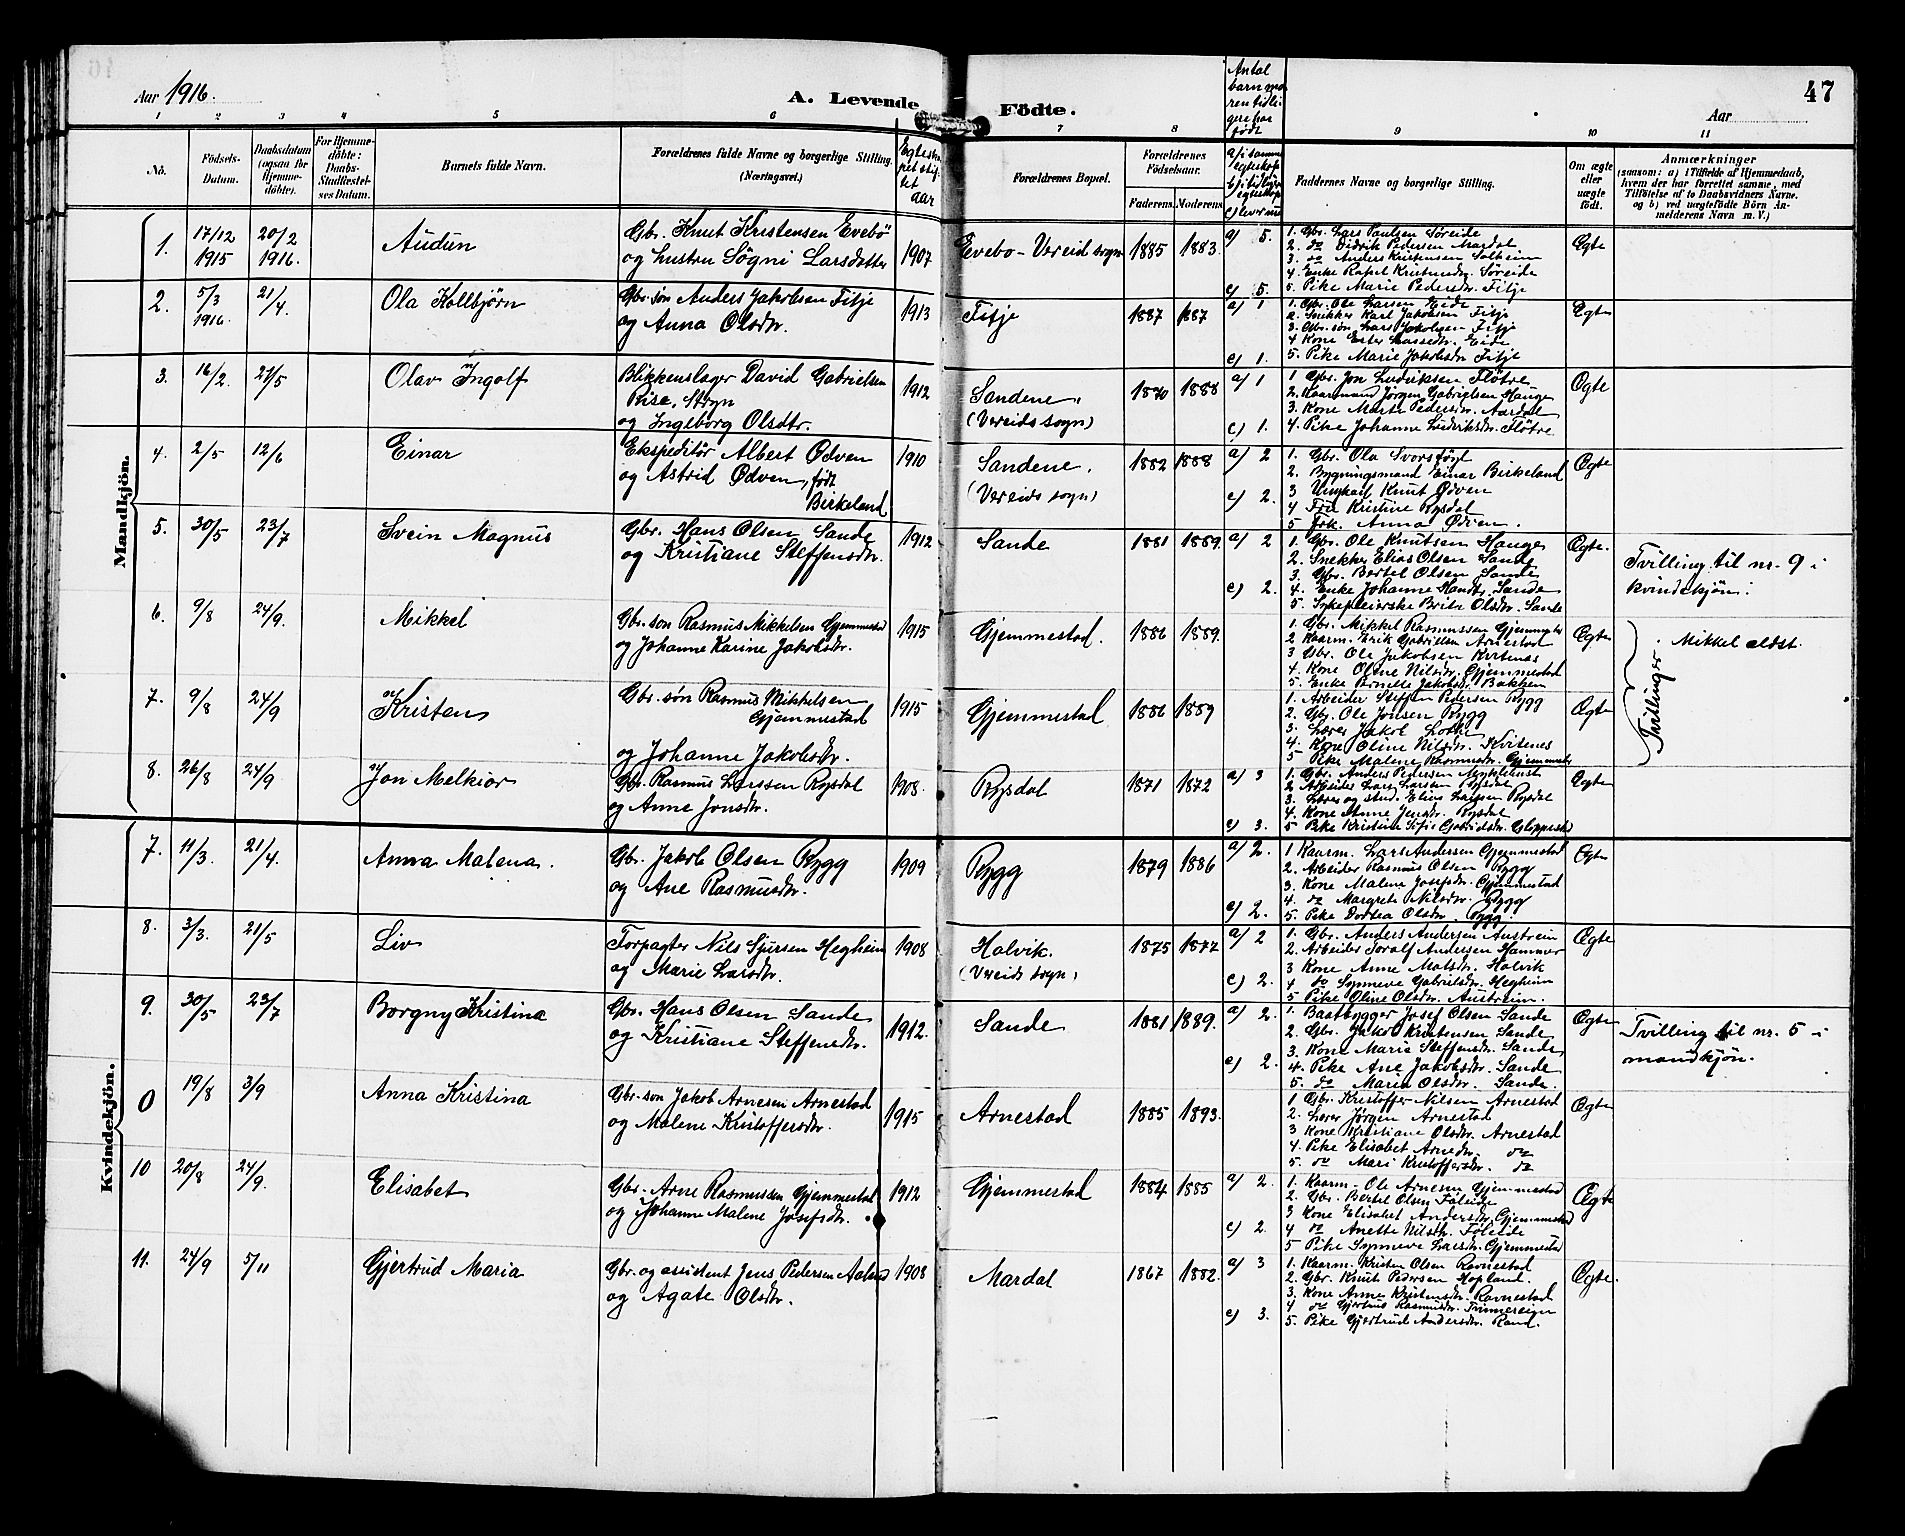 47
Aar 1916.
A. Levende Födte.
Aar
1 2 3 4 5 6 7 8 9 10 11
No.
Födsels-Datum.
Daabsdatum (ogsaa for Hjemmedöbte).
For Hjemmedöbte: Daabs-Stadfæstelses Datum.
Barnets fulde Navn.
Forældrenes fulde Navne og borgerlige Stilling. (Næringsvei.)
Egteskapet stiftet aar
Forældrenes Bopæl.
Forældrenes Födselsaar.
Faderens. Moderens.
Antal barn moren tidligere har født
a) i samme egteskap
b) i tidligere egteskap
c) lever nu
Faddernes Navne og borgerlige Stilling.
Om ægte eller uægte født.
Anmærkninger
(saasom: a) i Tilfælde af Hjemmedaab, hvem der har forrettet samme, med Tilföielse af to Daabsvidners Navne. og b) ved uægtefödte Börn Anmelderens Navn m. V.)
Mandkjön.
1. 17/12 1915 20/2 1916. Audun
Gbr. Knut Kristensen Evebö
og hustru Sögni Larsdatter
1907 Evebo - Vereid sogn 1885 1883. a) 5. c) 5.
1. Gbr. Lars Paulsen Søreide
2. do Didrik Pedersen Mardal
3. do Anders Kristensen Solheim
4. Enke Rakel Kristensdr. Søreide
5. Pike Marie Pedersdr. Fitje
Egte
2. 5/3 1916. 21/4. Ola Kolbjørn
Gbr. søn Anders Jakobsen Fitje
og Anna Olsdtr.
1913 Fitje 1887 1887 a) 1 c) 1.
1. Gbr. Ole Larsen Eide
2. Snikker Karl Jakobsen Fitje
3. Gbr. søn Lars Jakobsen Fitje
4 Kone Ester Lassedtr. Eide
5. Pike Marie Jakobsdr Fitje
Egte
3. 16/2. 21/5 Olav Ingolf
Blikkenslager David Gabrielsen
Rise, Stryn
og Ingeborg Olsdtr.
1912 Sandene.
(Vereids sogn)
1870 1888 a) 1 c) 1.
1 Gbr. Jon Ludviksen Fløtre
2. Kaarmand Jørgen Gabrielsen Hauge
3. Kone Marta Pedersdr. Aardal
4. Pike Johanne Ludviksdr. Fløtre
Ogte
4. 2/5 12/6 Einar
Ekspeditør Albert Ødven
og Astrid Ødven, født
Birkeland
1910 Sandene.
(Vereids sogn)
1882 1888 a) 2 c) 2.
1. Gbr. Ola Svorsføyt
2. Bygningsmand Einar Birkeland
3 Ungkarl Knut Ødven
4 Fru Kristine Rysdal
5 Frk. Anna Ødven.
Ogte
5. 30/5 23/7 Svein Magnus
Gbr. Hans Olsen Sande
og Kristiane Steffensdtr.
1912 Sande 1881 1889. a) 2 c) 2.
1. Gbr. Ole Knutsen Hauge
2. Snekker Elias Olsen Sande
3. Gbr. Bertel Olsen Sande
4. Enke Johanne Hansdtr. Sande
5. Sykepleierske Brite Olsdtr. Sande
Œgte.
Tvilling til nr. 9 i
kvindekjön.
6. 9/8 24/9. Mikkel
Gbr. søn Rasmus Mikkelsen Gjemmestad
og Johanne Karine Jakobsdr.
1915 Gjemmestad. 1886 1889.
1. Gbr. Mikkel Rasmussen Gjemmestad
2 Kaarm. Erik Gabrielsen Arnestad
3 Gbr. Ole Jakobsen Kvitenes
4. Kone Oline Nilsdr. Gjemmestad
5. Enke Jakobsdr. Bakken
Œgte
Mikkel eldst.
Tvillinger
7. 9/8 24/9 Kristen
Gbr. søn Rasmus Mikkelsen
Gjemmestad
og Johanne Jakobsdtr.
1915 Gjemmestad 1886 1889
1. Arbeider Steffen Pedersen Rygg
2. Gbr. Ole Jonsen Rygg
3. Lærer Jakob Lothe
4. Kone Oline Nilsdr. Kvitenes
5 Pike Malene Rasmusdr. Gjemmestad
Œgte
8. 26/8 24/9 Jon Melkior
Gbr. Rasmus Larssen Rysdal
og Anne Jonsdtr.
1908. Rysdal 1871 1872 a) 3 c) 3.
1. Gbr. Anders Pedersen Myklebust
2 Arbeider Lars Larsen Rysdal
3. Lærer og stud. Elias Larssen Rysdal
4. Kone Anne Jensdr. Rysdal
5 Pike Kristine Sofie Gabrielsdr. Gloppestad
Œgte
Kvindekjön.
7. 11/3. 21/4. Anna Malena.
Gbr. Jakob Olsen Rygg
og Ane Rasmusdr.
1909 Rygg 1879 1886 a) 2. c) 2.
1 Kaarm. Lars Andersen Gjemmestad
2. Arbeider Rasmus Olsen Rygg
3. Kone Malene Josefsdr. Gjemmestad
4. do Margrete Nilsdr. Rygg
5. Pike Dortea Olsdr. Rygg
Œgte
8. 3/3. 21/5 Liv
Forpagter Nils Sjursen Hegheim
og Marie Larsdtr.
1908 Holvik.
(Vereids sogn)
1875 1877 a) 2 c) 2.
1. Gbr. Anders Andersen Austrein
2. Arbeider Toralf Andersen Hammer
3 Kone Anne Matsdr. Holvik
4 do Synneve Gabrielsdr. Hegheim
5 Pike Oline Olsdr. Austreim.
Œgte
9. 30/5 23/7 Borgny Kristina
Gbr. Hans Olsen Sande
og Kristiane Steffensdr.
1912. Sande 1881 1889. a) 2. c) 2.
1. Baatbygger Josef Olsen Sande
2. Gbr. Jakob Kristensen Sande
3. Kone Marie Steffensdr. Sande
4. Pike Ane Jakobsdr. Sande
5. do Maria Olsdr. Sande.
Œgte
Tvilling til nr. 5 i
mandkjön.
0 19/8 3/9 Anna Kristina
Gbr. søn Jakob Arnesen Arnestad
og Malene Kristoffersdtr.
1915 Arnestad 1885 1893.
1 Gbr. Kristoffer Nilsen Arnestad
2. Lærer Jørgen Arnestad
3 Kone Kristiane Olsdr. Arnestad
4. Pike Elisabet Arnedr. do
5. do Mari Kristoffersdr. do
Œgte
10 20/8 24/9. Elisabet
Gbr. Arne Rasmussen Gjemmestad
og Johanne Malene Josefsdr.
1912 Gjemmestad 1884 1885 a) 2. c) 2.
1. Kaarm. Ole Arnesen Gjemmestad
2. Gbr. Bertel Olsen Føleide
3 Kone Elisabet Andersdr. Gjemmestad
4 do Anette Nilsdtr. Føleide
5 Pike Synneve Larsdr. Gjemmestad
Œgte
11. 24/9 5/11 Gjertrud Maria
Gbr. og assistent Jens Pedersen Aaland
og Agate Olsdtr.
1908 Mardal 1867 1882. a) 3 c) 3.
1. Kaarm. Kristen Olsen Ravnestad
2. Gbr. Knut Pedersen Hopland.
3. Kone Anne Kristensdr. Ravnestad
4 do Rasmusdr.
5. Pike Gjertrud Andersdr. Rand.
Œgte.